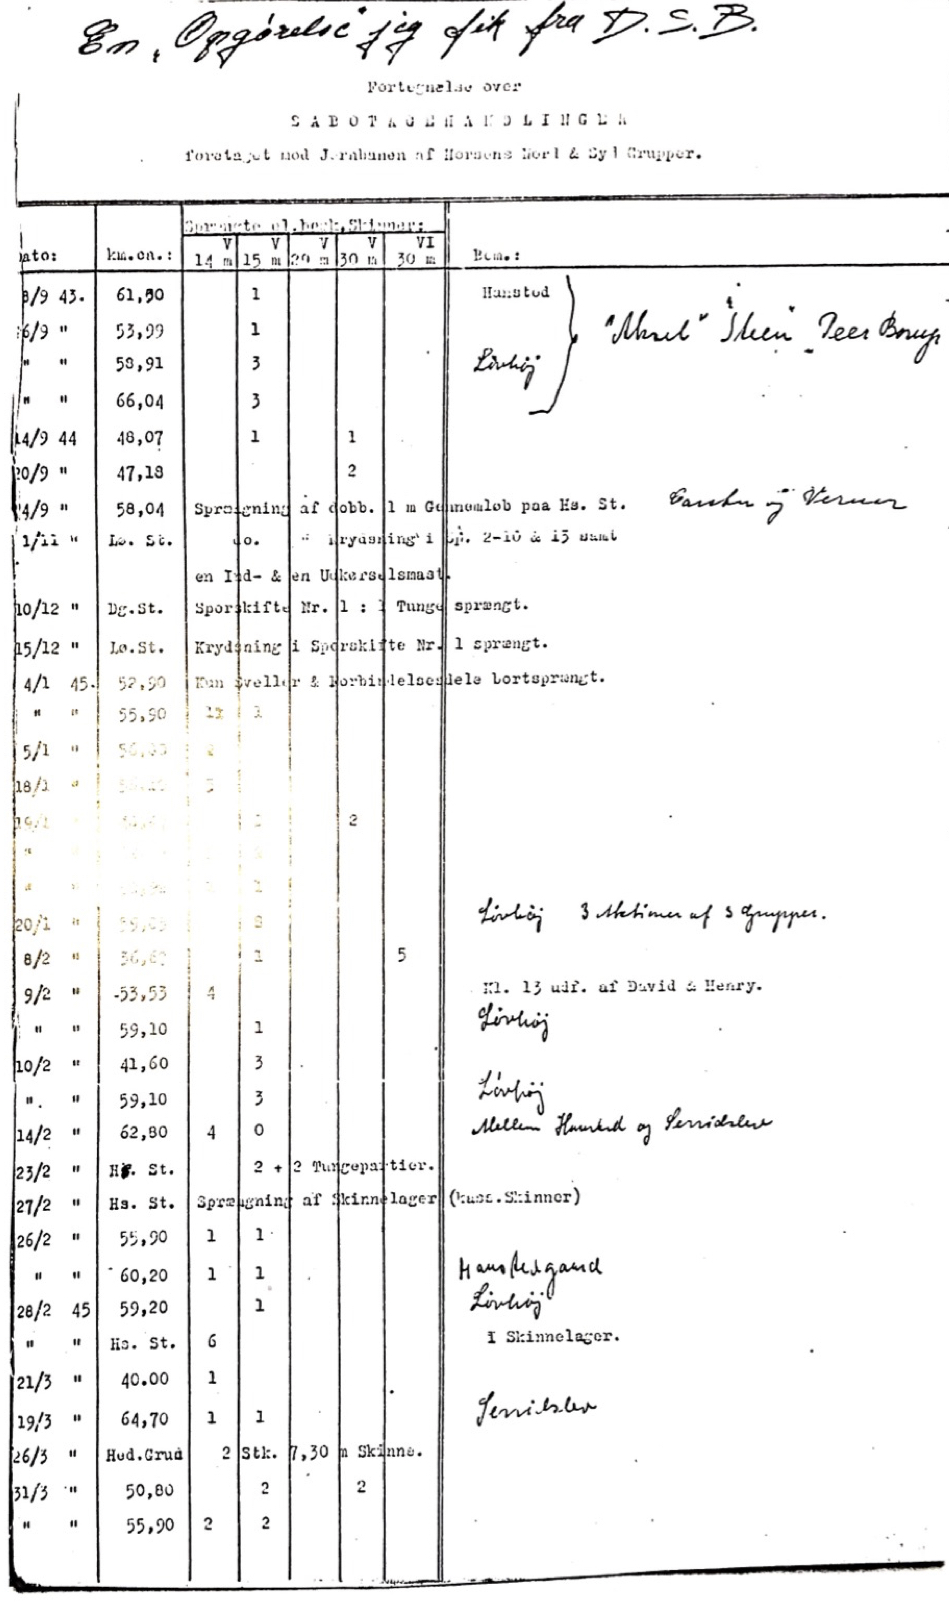 En "Opgørelse" jeg fik fra D.S.B.
Fortegnelse over
SABOTAGEHANDLINGER
foretaget mod Jernbanen af Horsens Nord & Syd Grupper.
Sprængte el. besk. Skinner:
ato: km.en.: V 14 m V 15 m V 20 m V 30 m VI 30 m Bem.:
8/9 43. 61,80 1 Hansted
6/9 " 53,99 1 "Aksel" "Steen" Peer Borup
" " 58,91 3 Løvhøj
" " 66,04 3
14/9 44 48,07 1 1
20/9 " 47,18 2
4/9 " 58,04 Sprængning af dobb. 1 m Gennemløb paa Hs. St. Carsten og Verner
1/11 " Lø. St. do. " Krydsning i Sp. 2-10 & 13 samt
en Ind- & en Udkørselsmast.
10/12 " Dg.St. Sporskifte Nr. 1 : 1 Tunge sprængt.
15/12 " Lø.St. Krydsning i Sporskifte Nr. 1 sprængt.
4/1 45. 52,90 Kun Sveller & Forbindelsesdele bortsprængt.
" " 55,90 1 1
5/1 " 2
18/1 " 3
19/1 " 1 2
"
" 1
20/1 " 3 Løvhøj 3 Aktioner af 3 Grupper.
8/2 " 1 5
9/2 " -53,53 4 Kl. 13 udf. af David & Henry.
" " 59,10 1 Løvhøj
10/2 " 41,60 3
". " 59,10 3 Løvhøj
14/2 " 62,80 4 0 Mellem Hansted og Serridslev
23/2 " Hs. St. 2 + 2 Tungepartier.
27/2 " Hs. St. Sprængning af Skinnelager (kass.Skinner)
26/2 " 55,90 1 1
" " 60,20 1 1 Hanstedgaard
28/2 45 59,20 1 Løvhøj
" " Hs. St. 6 I Skinnelager.
21/3 " 40.00 1
19/3 " 64,70 1 1 Serridslev
26/3 " Hed.Grud 2 Stk. 7,30 m Skinne.
31/3 " 50,80 2 2
" " 55,90 2 2